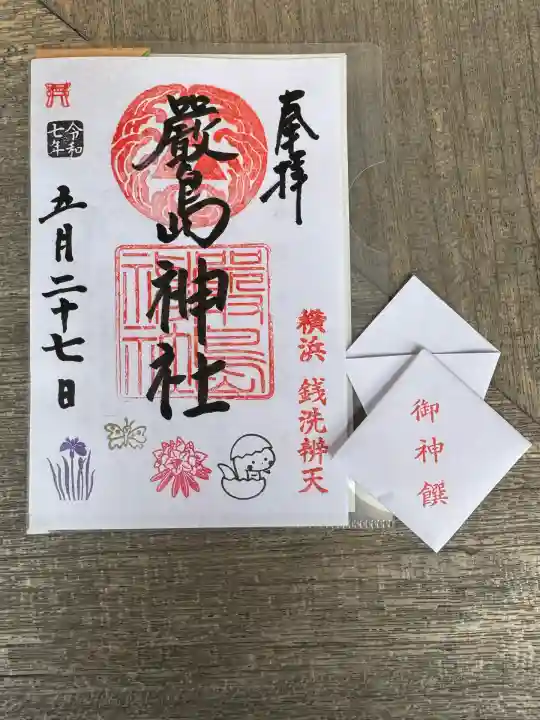 奉拝
嚴島神社
嚴島神社
令和七年
五月二十七日
横浜 銭洗辨天
御神饌